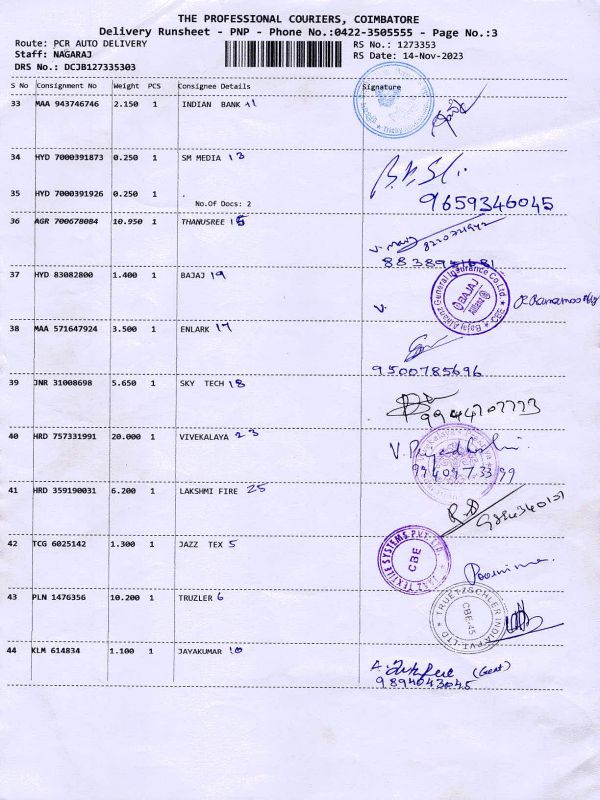 THE PROFESSIONAL COURIERS, COIMBATORE
Delivery Runsheet - PNP - Phone No.:0422-3505555 - Page No.:3
Route: PCR AUTO DELIVERY
RS No.: 1273353
Staff: NAGARAJ
RS Date: 14-Nov-2023
DRS No.: DCJB127335303
S No Consignment No Weight PCS Consignee Details Signature
33 MAA 943746746 2.150 1 INDIAN BANK 11
34 HYD 7000391873 0.250 1 SM MEDIA 13
35 HYD 7000391926 0.250 1 .
No.Of Docs: 2
9659346045
36 AGR 700678084 10.950 1 THANUSREE 15
37 HYD 83082800 1.400 1 BAJAJ 19
Bajaj Allianz General Insurance Co.Ltd. * CBE *
BAJAJ Allianz
38 MAA 571647924 3.500 1 ENLARK 17
9500785696
39 JNR 31008698 5.650 1 SKY TECH 18
40 HRD 757331991 20.000 1 VIVEKALAYA 23
41 HRD 359190031 6.200 1 LAKSHMI FIRE 25
42 TCG 6025142 1.300 1 JAZZ TEX 5
JAZZ TEXTILE SYSTEMS PVT.LTD.
CBE
Poornima.
43 PLN 1476356 10.200 1 TRUZLER 6
TRUETZSCHLER INDIA PVT. LTD
CBE-45
44 KLM 614834 1.100 1 JAYAKUMAR 10
9894043045